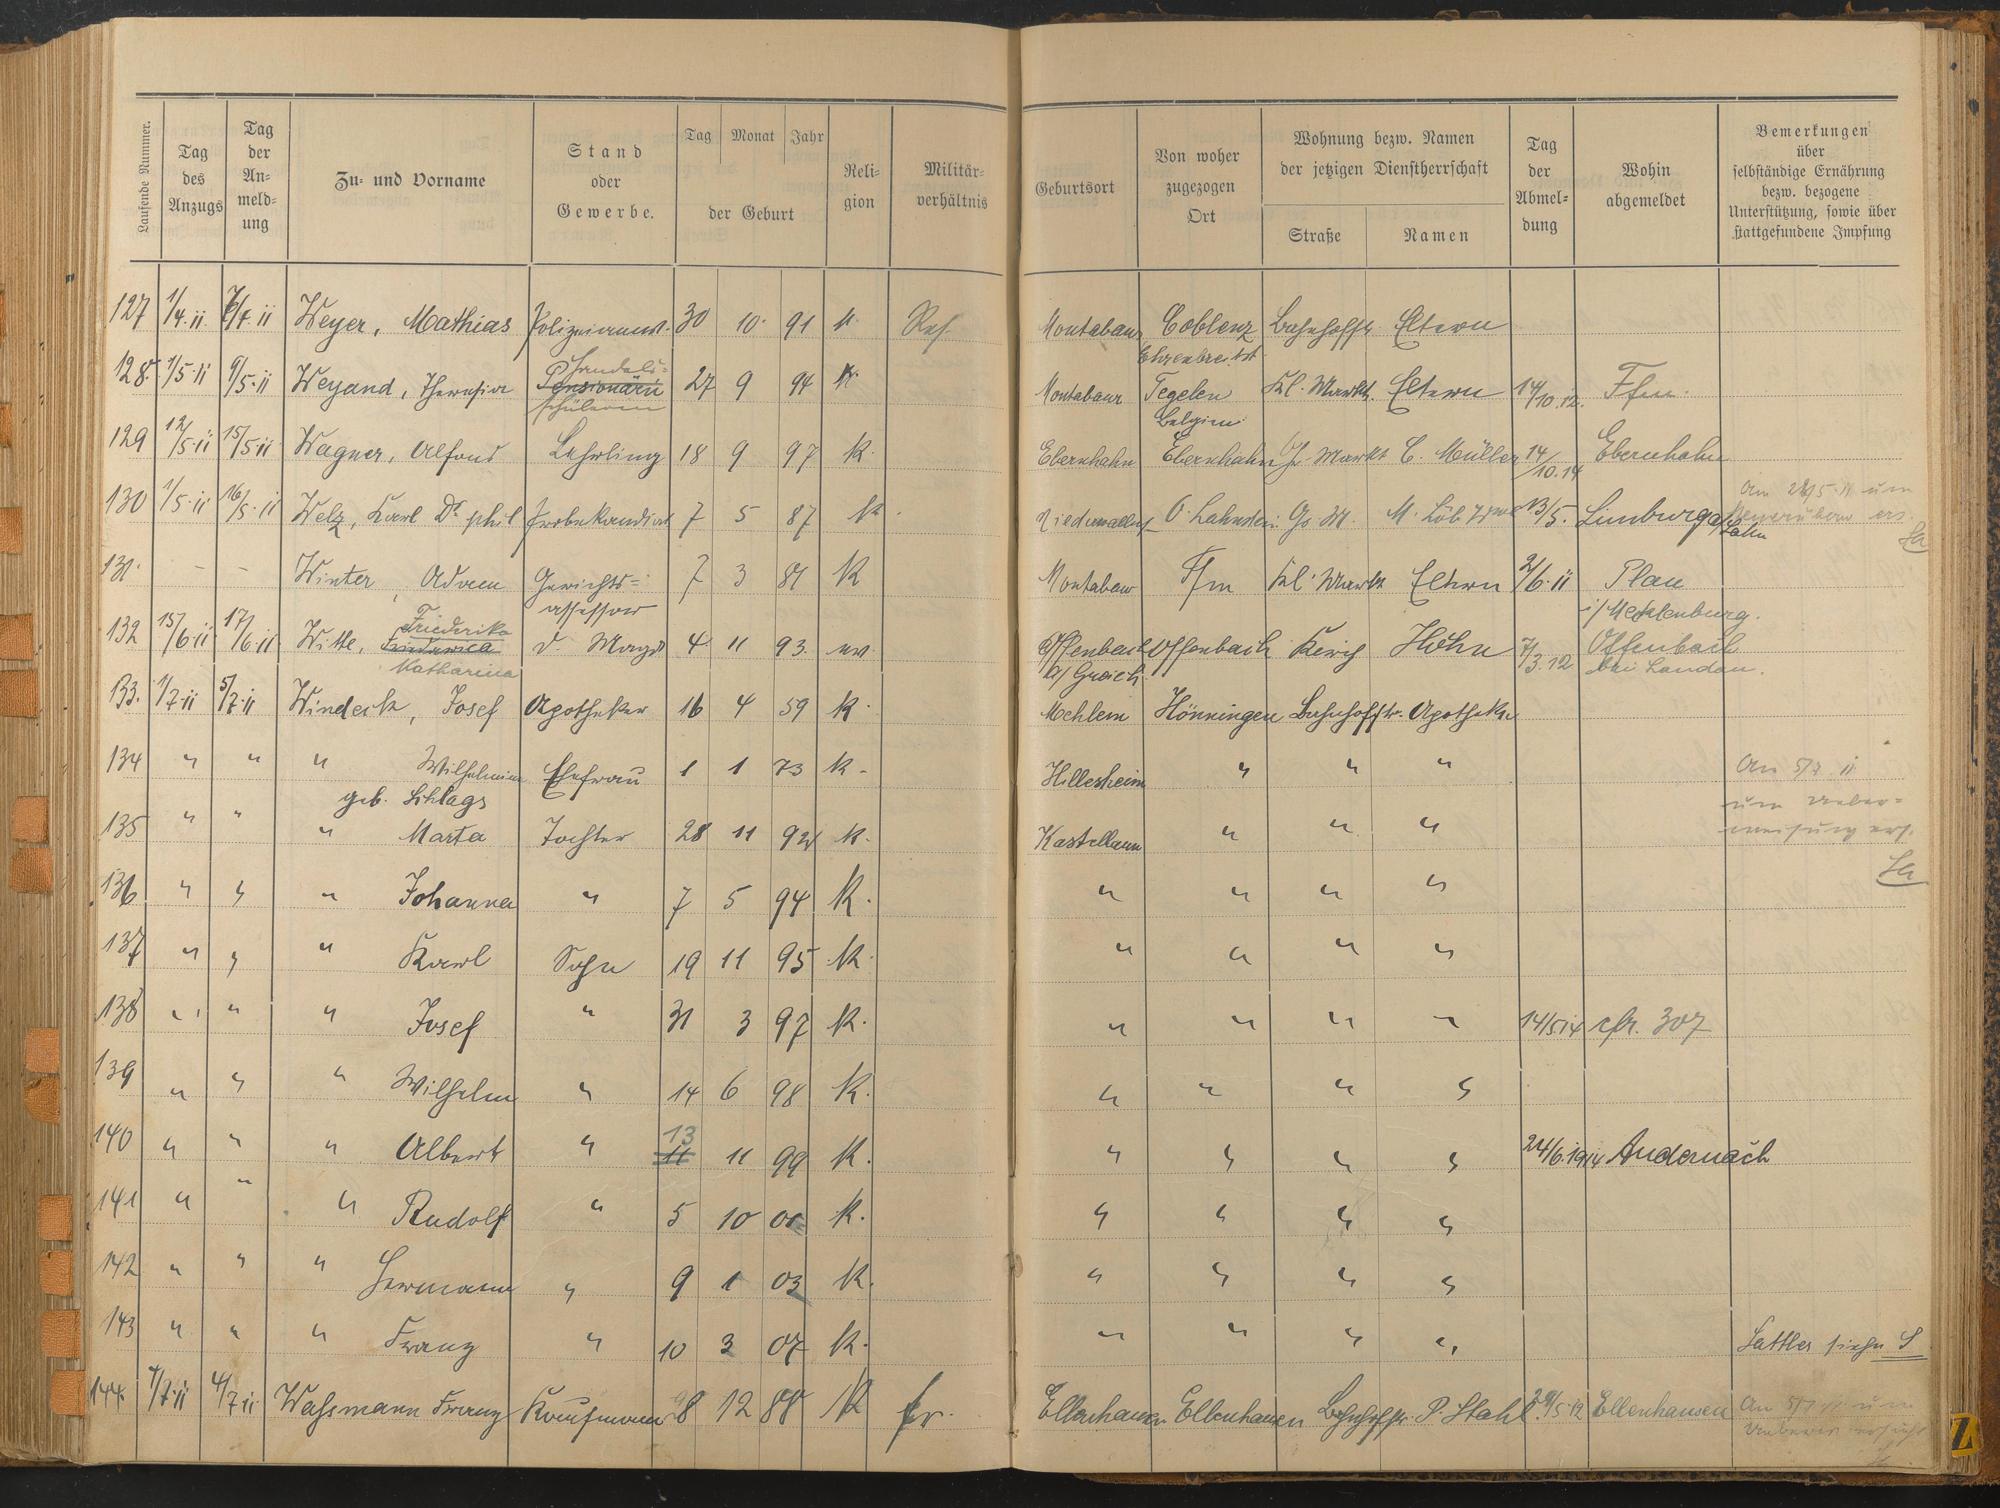 Laufende Nummer.
Tag des Anzugs
Tag der An-meld-ung
Zu- und Vorname
Stand oder Gewerbe.
Tag Monat Jahr
der Geburt
Reli-gion
Militär-verhältnis
Geburtsort
Von woher zugezogen Ort
Wohnung bezw. Namen der jetzigen Dienstherrschaft
Straße Namen
Tag der Abmel-dung
Wohin abgemeldet
Bemerkungen
über
selbständige Ernährung
bezw. bezogene
Unterstützung, sowie über
stattgefundene Impfung
127 1/4.11 7/4.11 Weyer, Mathias 30 10 91 k. Montabaur Coblenz Bahnhofstr. Eltern
Ehrenbreitst.
128. 1/5.11 9/5.11 Weyand, Theresia Handels= Pensionärin schülerin 27 9 94 k. Montabaur Tegelen Kl. Markt. Eltern 14/10.12. Ffm.
Belgien
129 12/5.11 15/5.11 Wagner, Alfons Lehrling 18 9 97 k. Ebernhahn Ebernhahn Gr. Markt C. Müller 14/10.14 Ebernhahn
130 1/5.11 16/5.11 Welz, Karl Dr. phil Probekandidat 7 5 87 k. O. Lahnstein Gr. M. M. Löb Wwe 13/5. Limburg a/Lahn
131. - - Winter, Adam Gerichts= assessor 7 3 81 k Montabaur Ffm Kl. Markt Eltern 2/6.11 Plau
i/Mecklenburg.
132 15/6.11 17/6.11 Witte, Friederika Katharina d. Magd 4 11 93. ev. Offenbach Offenbach Höhn 7/3.12 Offenbach
bei Landau.
133. 1/7.11 5/7.11 Windeck, Josef Apotheker 16 4 59 k. Mehlem Hönningen Bahnhofstr. Apotheke
134 " " " Wilhelmine Ehefrau 1 1 73 k. Hillesheim " " " An 5/7 11
geb. Schlags um Ueber=
135 " " " Marta Tochter 28 11 92 k. Kastellaun " " " weisung ers.
136 " " " Johanna " 7 5 94 k. " " " "
137 " " " Karl Sohn 19 11 95 k. " " " "
138 " " " Josef " 31 3 97 k. " " " " 14/5 14 cfr. 307
139 " " " Wilhelm " 14 6 98 k. " " " "
140 " " " Albert " 13 11 11 99 k. " " " " 24/6.1914 Andernach
141 " " " Rudolf " 5 10 k. " " " "
142 " " " Hermann " 9 1 03 k. " " " "
143 " " " Franz " 10 3 07 k. " " " " Sattler siehe S
144. 4/7.11 4/7.11 Wassmann Franz Kaufmann 8 12 88 k fr. Ellenhausen Ellenhausen Bahnhofstr. P. Stahl 5.12 Ellenhausen An 5/7 11 um
Z